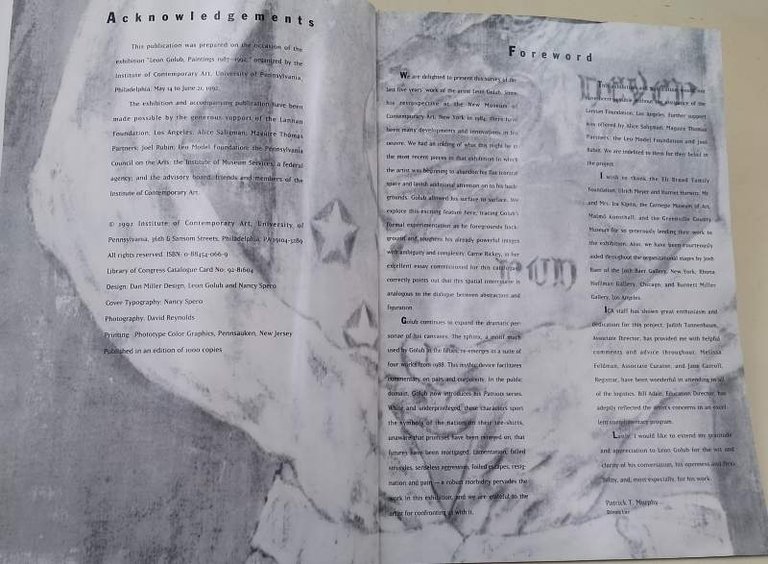 Acknowledgements
This publication was prepared on the occasion of the
exhibition "Leon Golub, Paintings 1987-1992," organized by the
Institute of Contemporary Art, University of Pennsylvania,
Philadelphia, May 14 to June 21, 1992.
The exhibition and accompanying publication have been
made possible by the generous support of the Lannan
Foundation, Los Angeles; Alice Saligman; Maguire Thomas
Partners; Joel Rubin; Leo Model Foundation; the Pennsylvania
Council on the Arts; the Institute of Museum Services, a federal
agency; and the advisory board, friends and members of the
Institute of Contemporary Art.
© 1992 Institute of Contemporary Art, University of
Pennsylvania, 36th & Sansom Streets, Philadelphia, PA 19104-3289
All rights reserved. ISBN: 0-88454-066-9
Library of Congress Catalogue Card No: 92-81604
Design: Dan Miller Design, Leon Golub and Nancy Spero
Cover Typography: Nancy Spero
Photography: David Reynolds
Printing: Phototype Color Graphics, Pennsauken, New Jersey
Published in an edition of 1000 copies
Foreword
We are delighted to present this survey of the
last five years' work of the artist Leon Golub. Since
his retrospective at the New Museum of
Contemporary Art, New York in 1984, there have
been many developments and innovations in his
oeuvre. We had an inkling of what this might be in
the most recent pieces in that exhibition in which
the artist was beginning to abandon his flat pictorial
space and lavish additional attention on to his back-
grounds. Golub allowed his surface to surface. We
explore this exciting feature here, tracing Golub's
formal experimentation as he foregrounds back-
ground and toughens his already powerful images
with ambiguity and complexity. Carrie Rickey, in her
excellent essay commissioned for this catalogue
correctly points out that this spatial interplay is
analogous to the dialogue between abstraction and
figuration.
Golub continues to expand the dramatic per-
sonae of his canvases. The sphinx, a motif much
used by Golub in the fifties, re-emerges in a suite of
four works from 1988. This mythic device facilitates
commentary on pairs and corporeity. In the public
domain, Golub now introduces his Patriots series.
White and underprivileged, these characters sport
the symbols of the nation on their tee-shirts,
unaware that promises have been reneged on, that
futures have been mortgaged. Lamentation, failed
struggles, senseless aggression, foiled escapes, resig-
nation and pain — a robust morbidity pervades the
work in this exhibition, and we are grateful to the
artist for confronting us with it.
This exhibition and publication would not
have been possible without the assistance of the
Lannan Foundation, Los Angeles. Further support
was offered by Alice Saligman, Maguire Thomas
Partners, the Leo Model Foundation and Joel
Rubin. We are indebted to them for their belief in
the project.
I wish to thank the Eli Broad Family
Foundation, Ulrich Meyer and Harriet Horwitz, Mr.
and Mrs. Ira Kipnis, the Carnegie Museum of Art,
Malmö Konsthall, and the Greenville County
Museum for so generously lending their work to
the exhibition. Also, we have been courteously
aided throughout the organizational stages by Josh
Baer of the Josh Baer Gallery, New York, Rhona
Hoffman Gallery, Chicago, and Burnett Miller
Gallery, Los Angeles.
ICA staff has shown great enthusiasm and
dedication for this project. Judith Tannenbaum,
Associate Director, has provided me with helpful
comments and advice throughout. Melissa
Feldman, Associate Curator, and Jane Carroll,
Registrar, have been wonderful in attending to all
of the logistics. Bill Adair, Education Director, has
adeptly reflected the artist's concerns in an excel-
lent complementary program.
Lastly, I would like to extend my gratitude
and appreciation to Leon Golub for the wit and
clarity of his conversation, his openness and flexi-
bility, and, most especially, for his work.
Patrick T. Murphy
Director